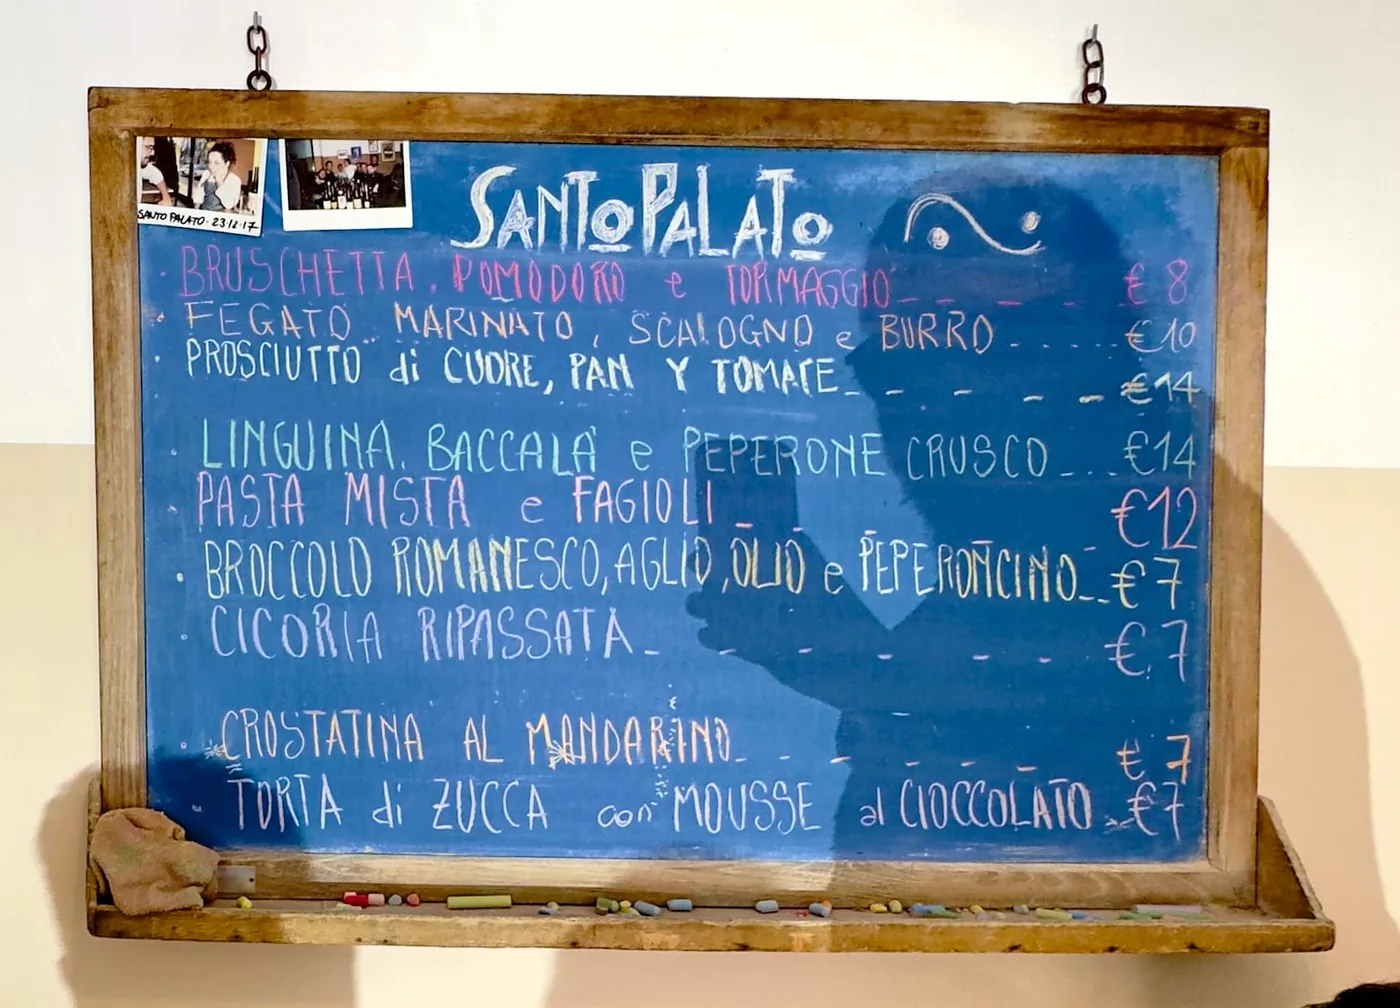 SANTO PALATO
SANTO PALATO · 23·12·17
BRUSCHETTA, POMODORO e FORMAGGIO €8
FEGATO MARINATO, SCALOGNO e BURRO €10
PROSCIUTTO di CUORE, PAN Y TOMATE €14
LINGUINA, BACCALÀ e PEPERONE CRUSCO €14
PASTA MISTA e FAGIOLI €12
BROCCOLO ROMANESCO, AGLIO, OLIO e PEPERONCINO €7
CICORIA RIPASSATA €7
CROSTATINA AL MANDARINO €7
TORTA di ZUCCA con MOUSSE al CIOCCOLATO €7